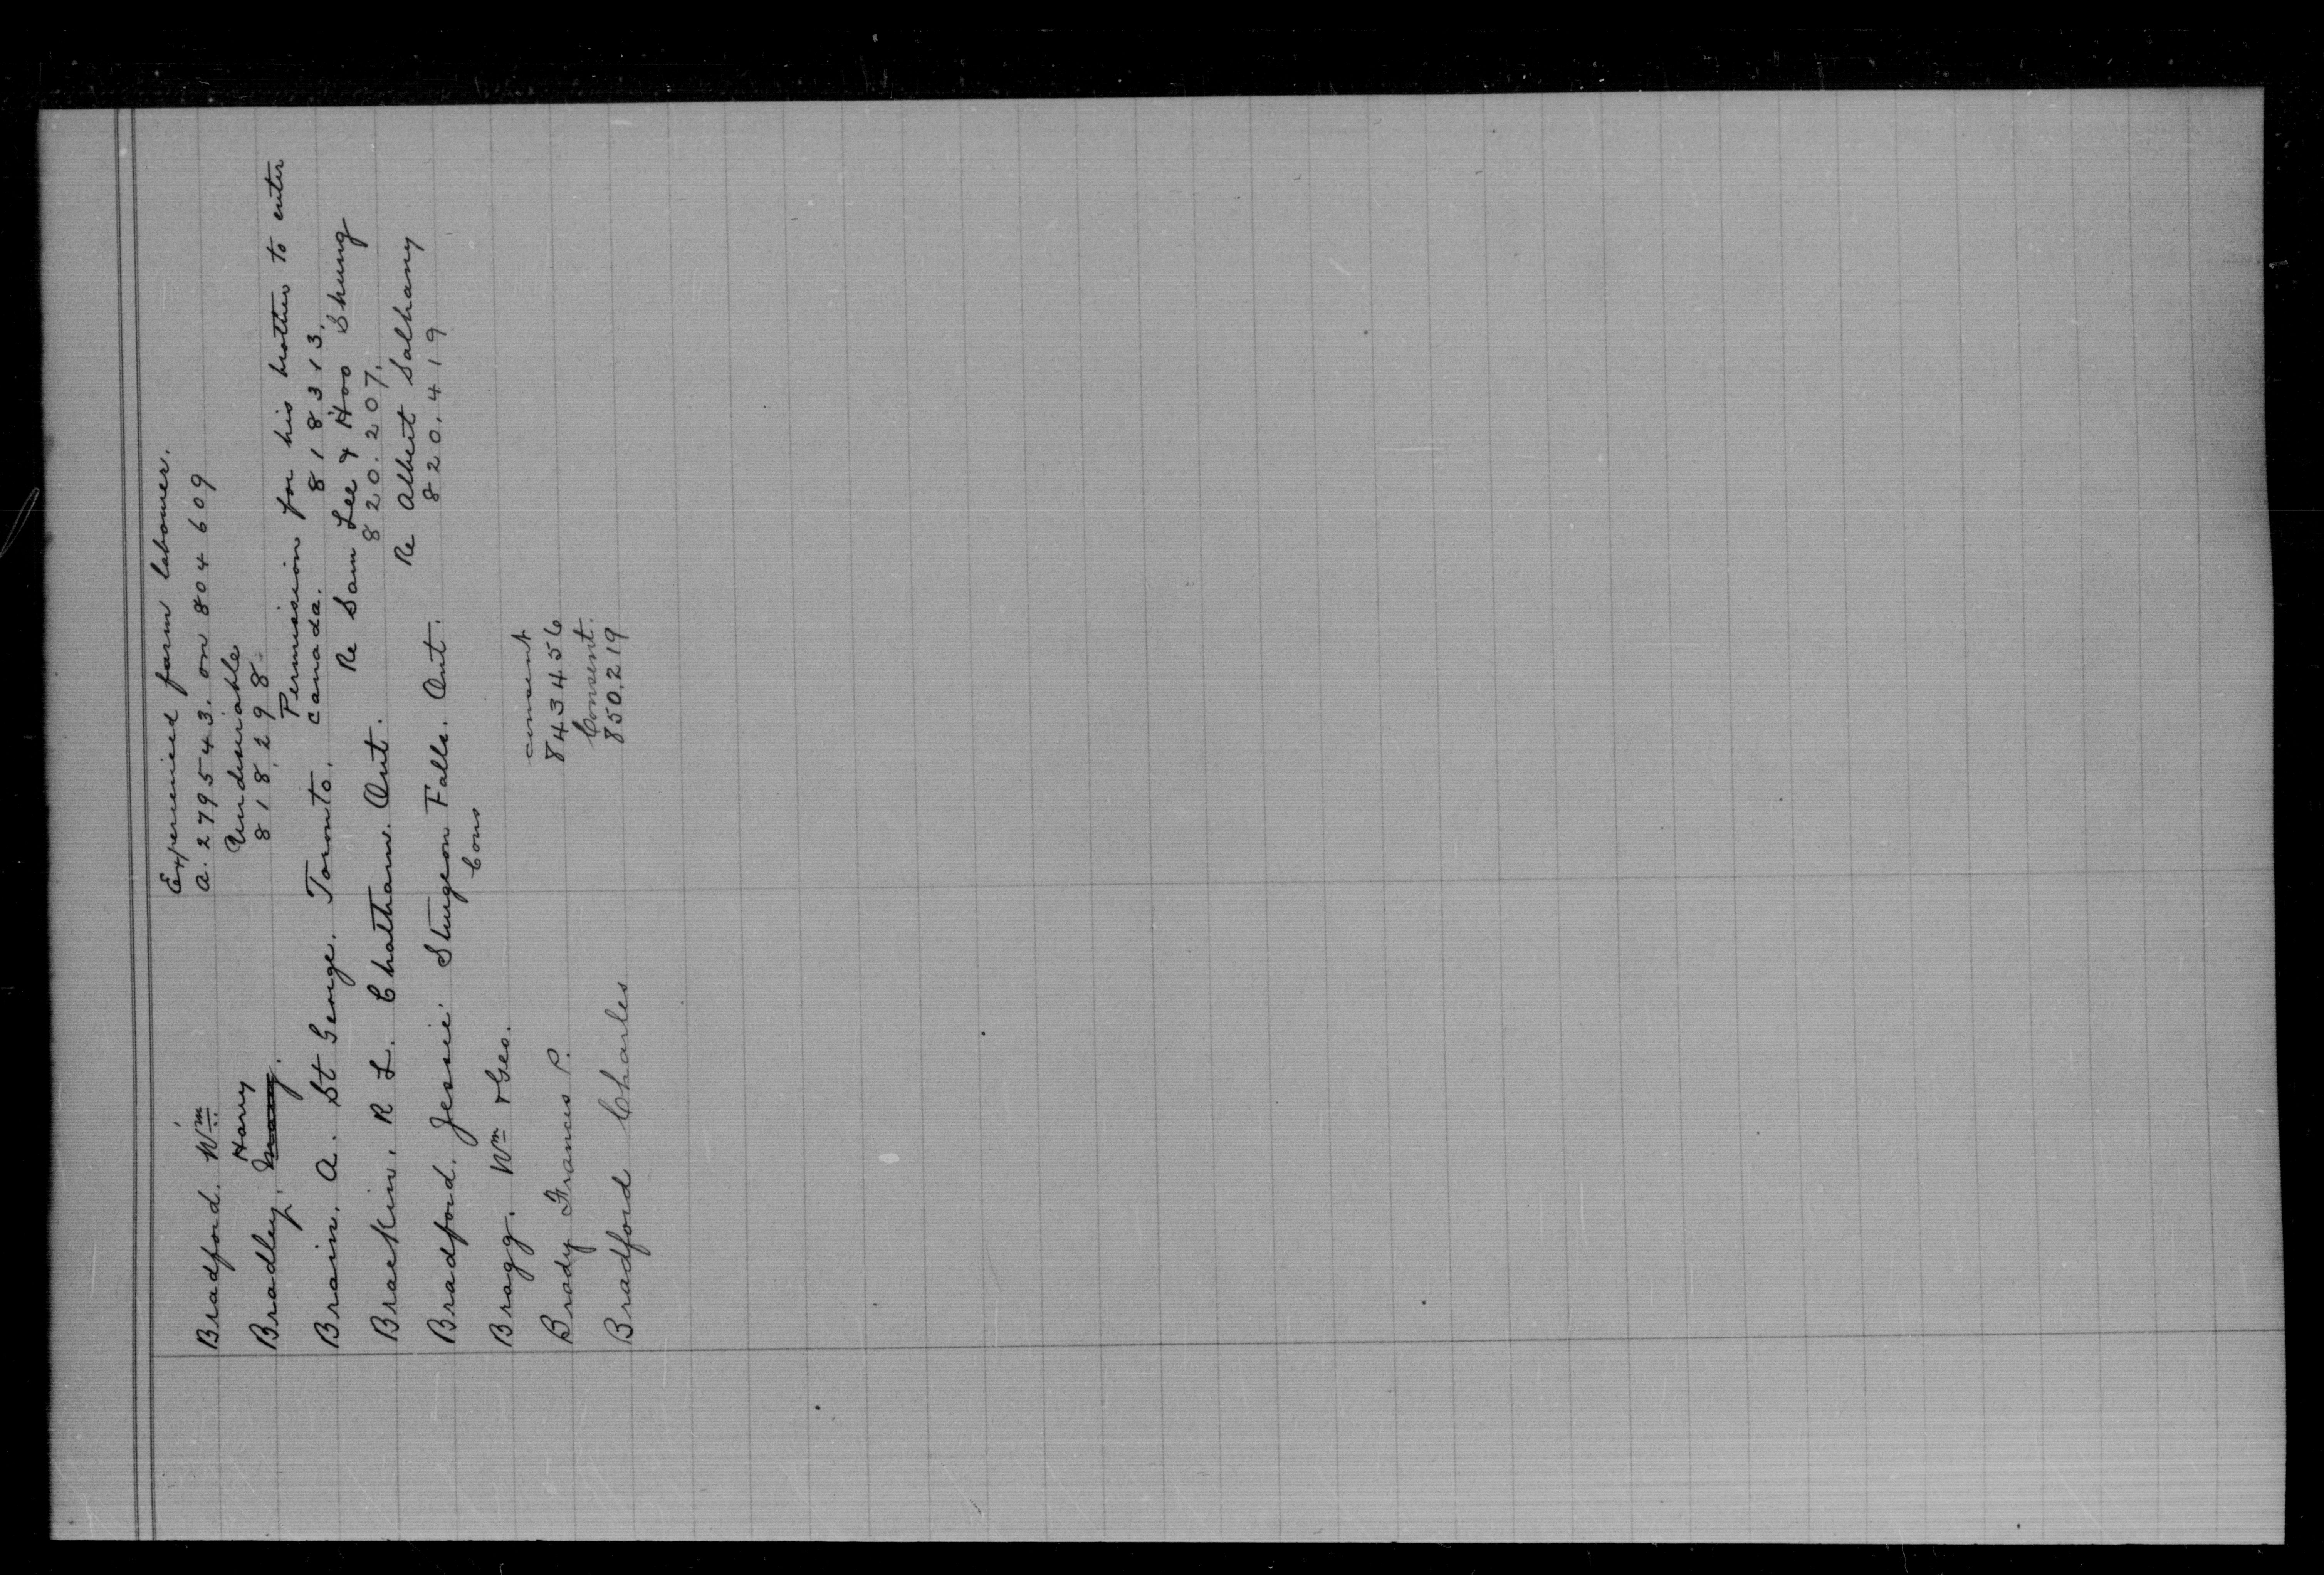 Experienced farm labourer.
Bradford. Wm A. 279543. on 804609
Harry Undesirable
Bradley. 818,298.
Permission for his brother to enter
Brain. A. St George. Toronto. Canada. 818313.
Re Sam Lee & Hoo Shung
Brackin. R L. Chatham. Ont. 820.207.
Re Albert Salhany
Bradford. Jessie. Sturgeon Falls. Ont. 820.419
Cons
Bragg. Wm & Geo.
consent
Brady Francis P. 843456
Consent.
Bradford Charles 850,219